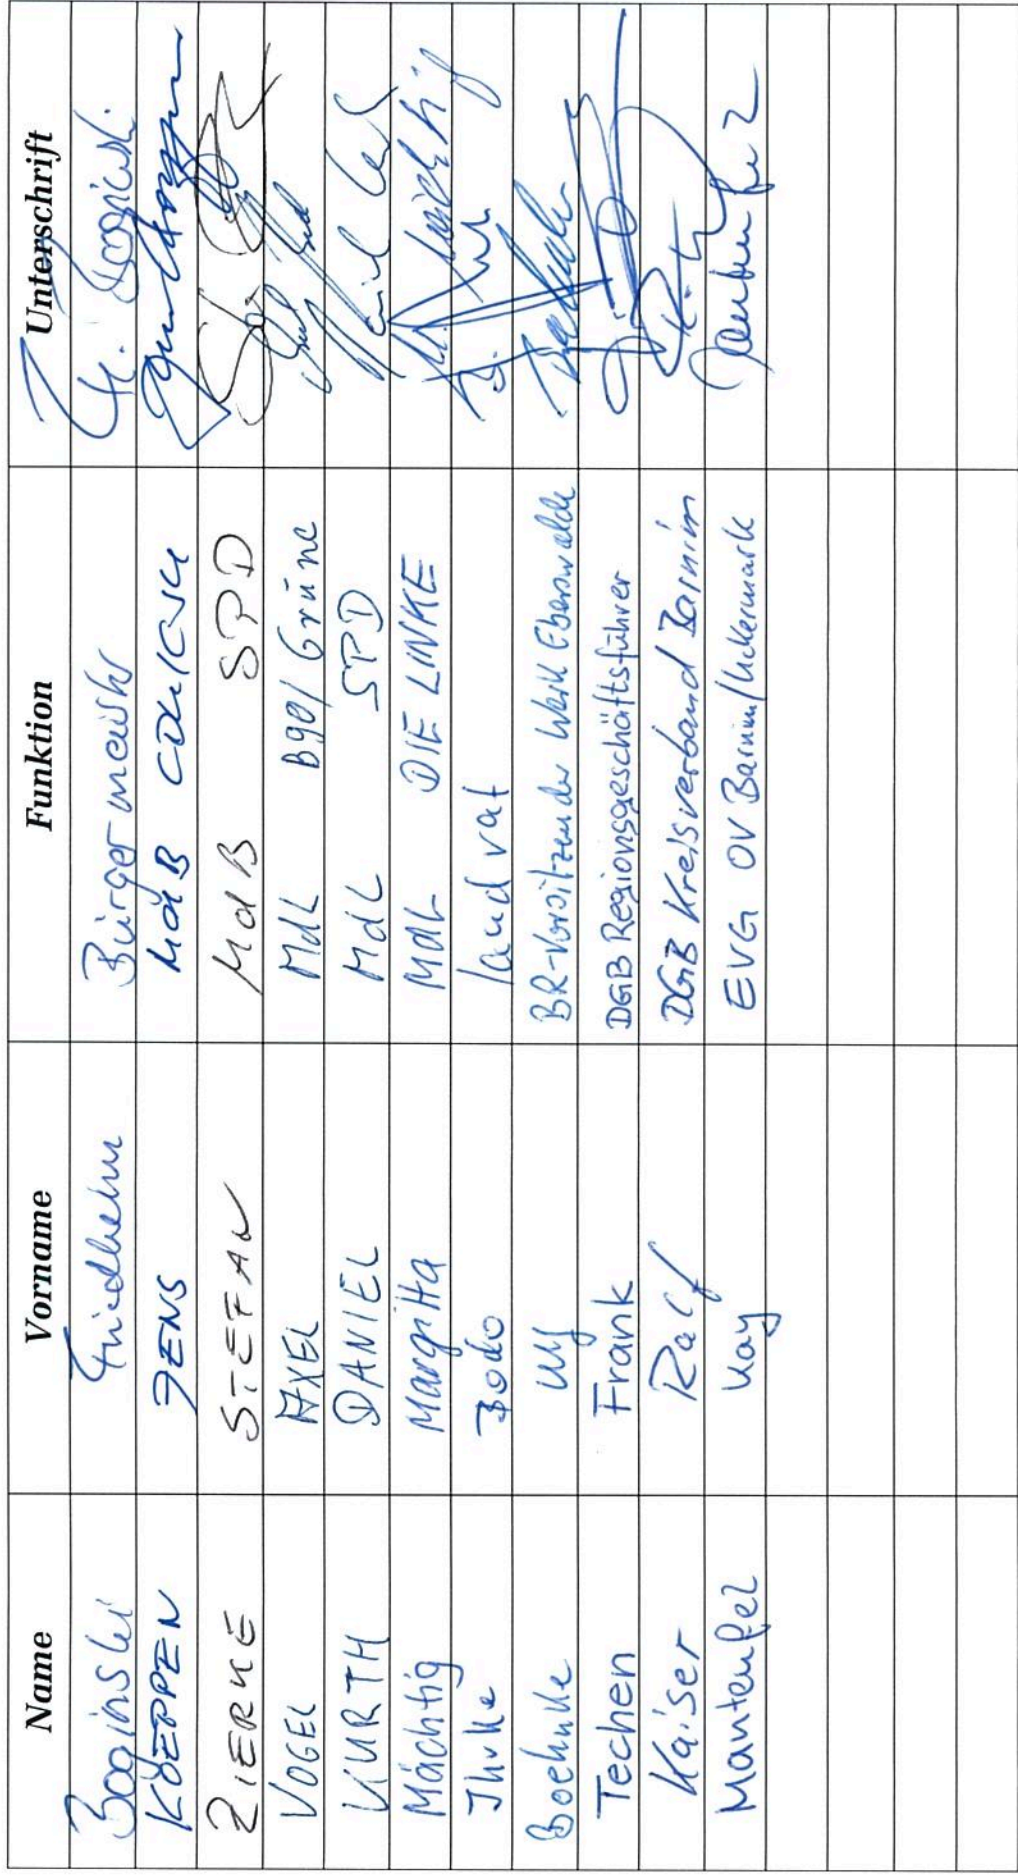 Name Vorname Funktion Unterschrift
Boginski Friedhelm Bürgermeister
KOEPPEN JENS MdB CDU/CSU
ZIERKE STEFAN MdB SPD
VOGEL AXEL MdL B90/Grüne
KURTH DANIEL MdL SPD
Mächtig Margitta MdL DIE LINKE
Ihrke Bodo Landrat
Boehnke Ulf BR-Vorsitzender Werk Eberswalde
Techen Frank DGB Regionsgeschäftsführer
Kaiser Ralf DGB Kreisverband Barnim
Manteufel Kay EVG OV Barnim/Uckermark